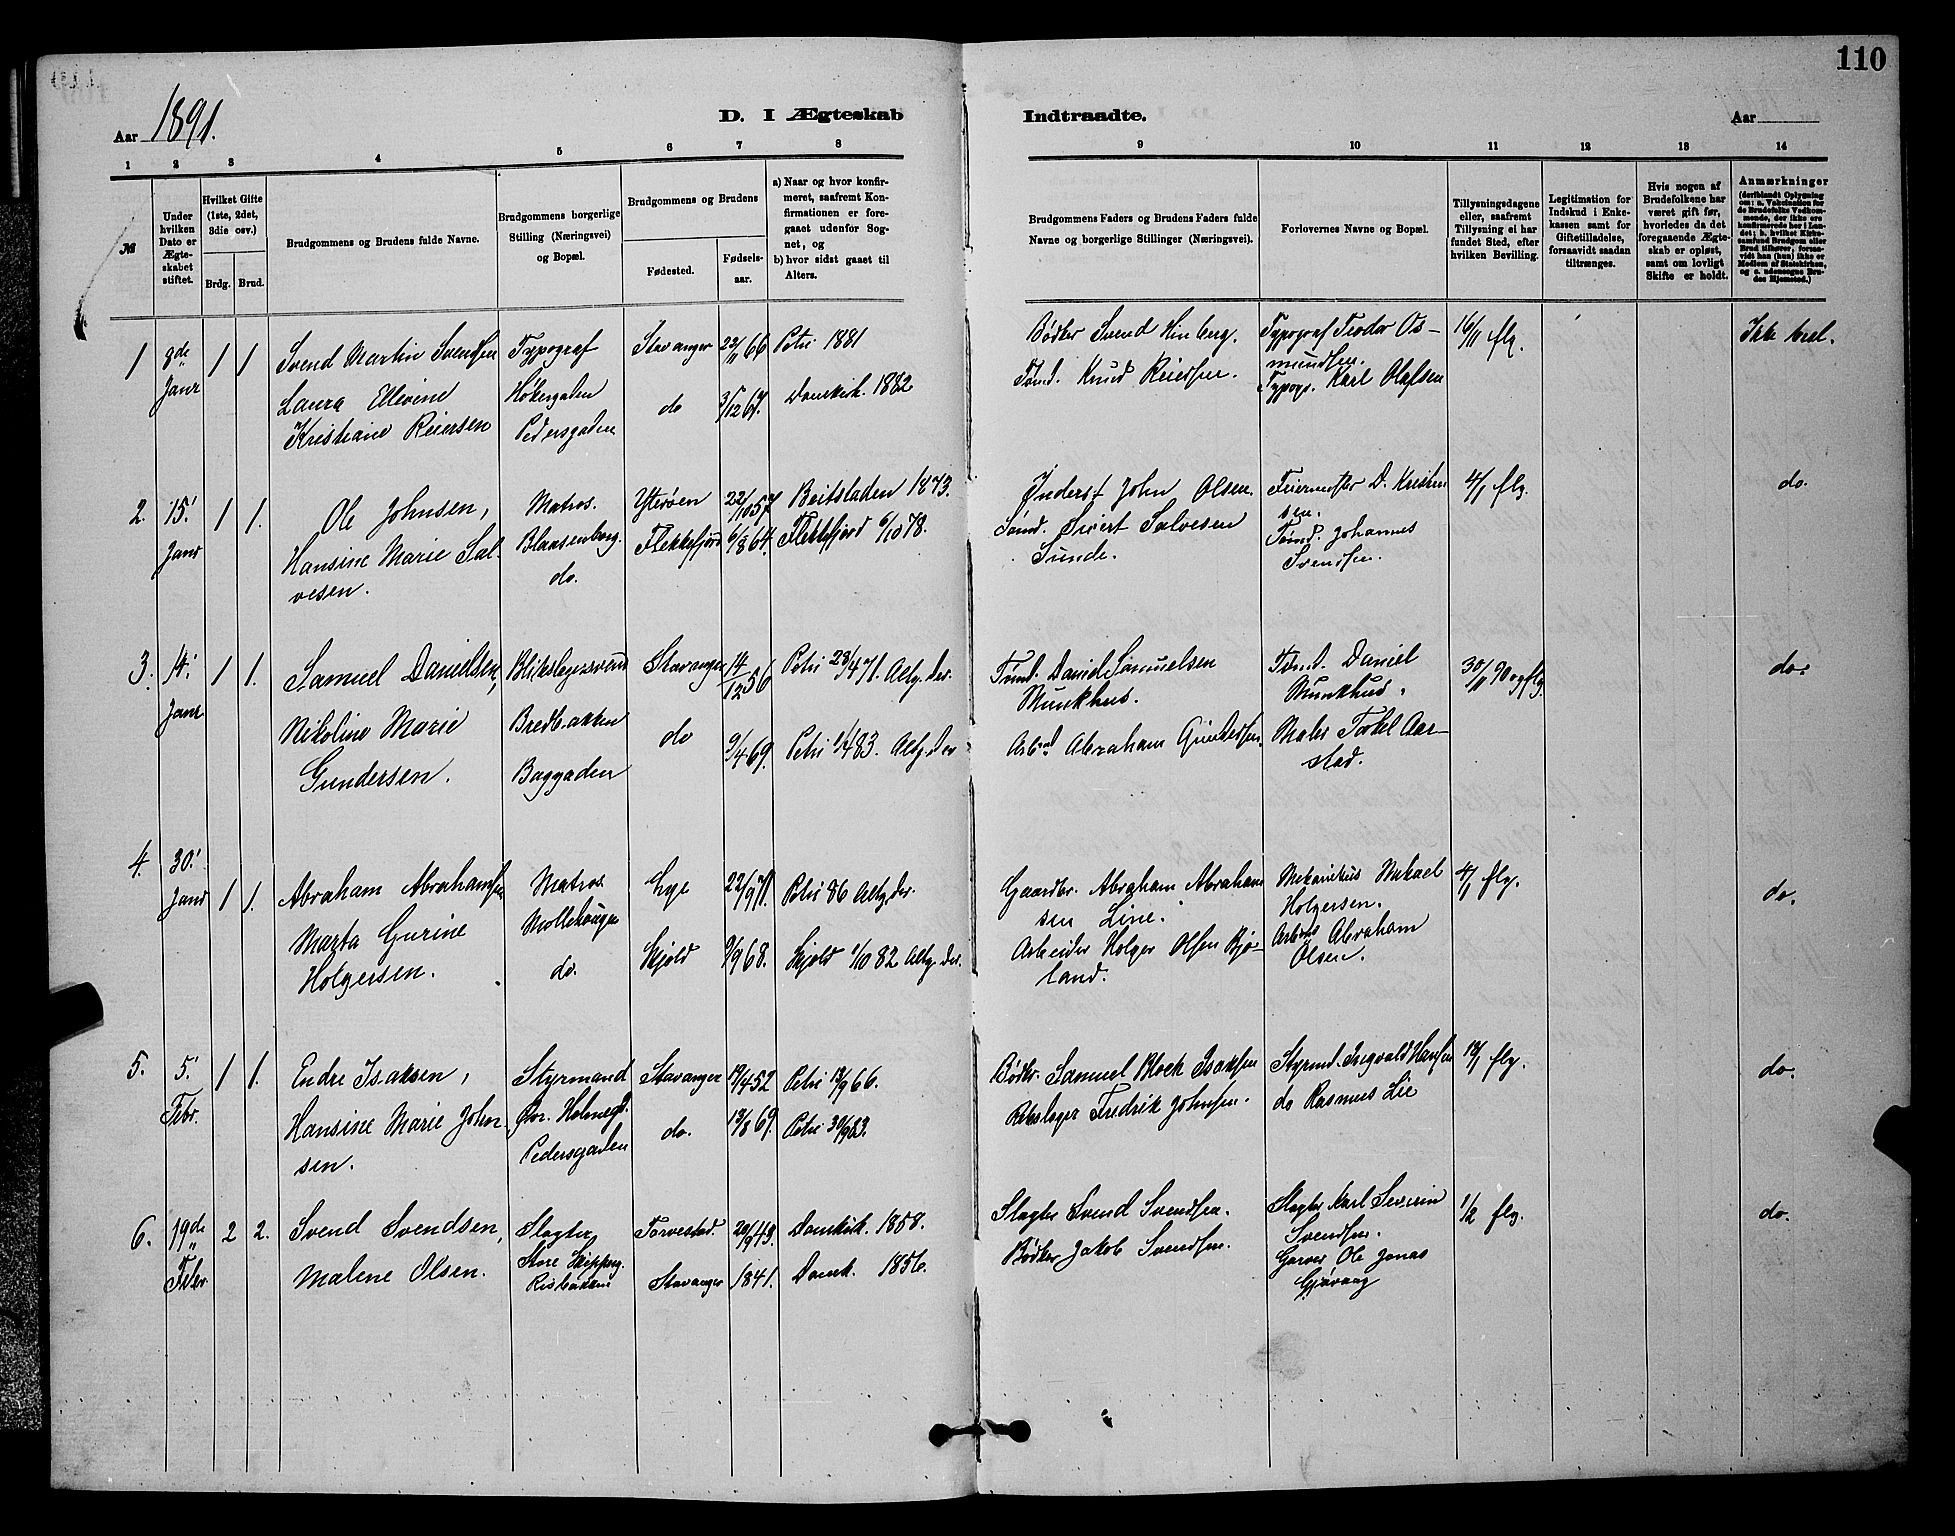 110
Aar 1891.
D. I Ægteskab
Indtraadte.
Aar
1 2 3 4 5 6 7 8
9 10 11 12 13 14
№
Under hvilken Dato er Ægteskabet stiftet.
Hvilket Gifte (1ste, 2det, 3die osv.)
Brdg. Brud.
Brudgommens og Brudens fulde Navne.
Brudgommens borgerlige Stilling (Næringsvei) og Bopæl.
Brudgommens og Brudens
Fødested.
Fødselsaar.
a) Naar og hvor konfirmeret, saafremt Konfirmationen er foregaaet udenfor Sognet, og
b) hvor sidst gaaet til Alters.
Brudgommens Faders og Brudens Faders fulde Navne og borgerlige Stillinger (Næringsvei).
Forlovernes Navne og Bopæl.
Tillysningsdagene eller, saafremt Tillysning ei har fundet Sted, efter hvilken Bevilling.
Legitimation for Indskud i Enkekassen samt for Giftetilladelse, forsaavidt saadan tiltrænges.
Hvis nogen af Brudefolkene har været gift før, hvorledes da det foregaaende Ægteskab er opløst, samt om lovligt Skifte er holdt.
Anmærkninger (deriblandt Oplysning om: a. Vaksination for de Brudefolks Vedkommende, der ikke ere konfirmerede her i Landet; b. hvilket Kirkesamfund Brudgom eller Brud tilhører, forsaavidt han (hun) ikke er Medlem af Statskirken, og c. udenogns Brudes Hjemsted.)
1 8de Janr 1 1 Svend Martin Svendsen Typograf Stavanger 22/11 66 Petri 1881
Høkergaden
Laura Ellevine do 3/12 67. Domkirk. 1882
Kristiane Reiersen Pedersgaden
Bødker Svend Hinberg. Typograf Teodor Os-
mundsen.
Tømd. Knud Reiersen. Typogr. Karl Olafsen
16/11 flg. Ikke besl.
2. 15! Janr 1 1. Ole Johnsen, Matros. Ytterøen 22/10 57 Beitstaden 1873.
Blaasenborg.
Hansine Marie Sal- Flekkefjord 6/8 64. Flekkefjord 6/10 78.
vesen. do.
Inderst John Olsen. Feiermester D. Kristen
sen.
Tømd. Sivert Salvesen Tømd. Johannes
Sunde. Svendsen.
4/1 flg. do.
3. 14! Janr 1 1. Samuel Danielsen, Blikslagersvend Stavanger 14/12 56 Petri 23/4 71. Altg. der.
Nikoline Marie Bredbakken do 9/4 69. Petri 1/4 83. Altg. der
Gundersen. Baggaden
Tømd. Daniel Samuelsen Tømd. Daniel
Munkhus. Munkhus.
Arbmd Abraham Gundersen. Maler Torkel Aar-
stad.
30/11 90 og flg. do.
4. 30! Janr 1 1. Abraham Abrahamsen Matros. Ege 22/9 71. Petri 86 Altg. der.
Møllehaugen
Marta Gurine Skjold 9/9 68. Skjold 1/10 82 Altg. der.
Holgersen. do.
Gaardbr. Abraham Abraham Mekanikus Mikael
sen Line. Holgersen.
Arbeider Holger Olsen Bjø- Arbmd Abraham
land. Olsen.
4/1 flg. do.
5. 5! Febr. 1 1. Endre Isaksen, Styrmand Stavanger 19/4 52 Petri 13/9 66.
Øvr. Holmegd.
Hansine Marie John do. 13/8 69. Petri 30/9 83.
sen. Pedersgaden
Bødkr. Samuel Block Isaksen Styrmd. Ingvald Hansen
Rebslager Fredrik Johnsen. do Rasmus Lie
18/1 flg. do.
6. 19de " Febr 2 2. Svend Svendsen, Slagter Torvestad. 20/9 43. Domkirk. 1858.
Store Skipperg.
Malene Olsen. Risbakken Stavanger 1841. Domk. 1856.
Slagter Svend Svendsen. Slagter Karl Severin
Svendsen.
Bødker Jakob Svendsen. Garver Ole Jonas
Gjøvaag
1/2 flg. do.